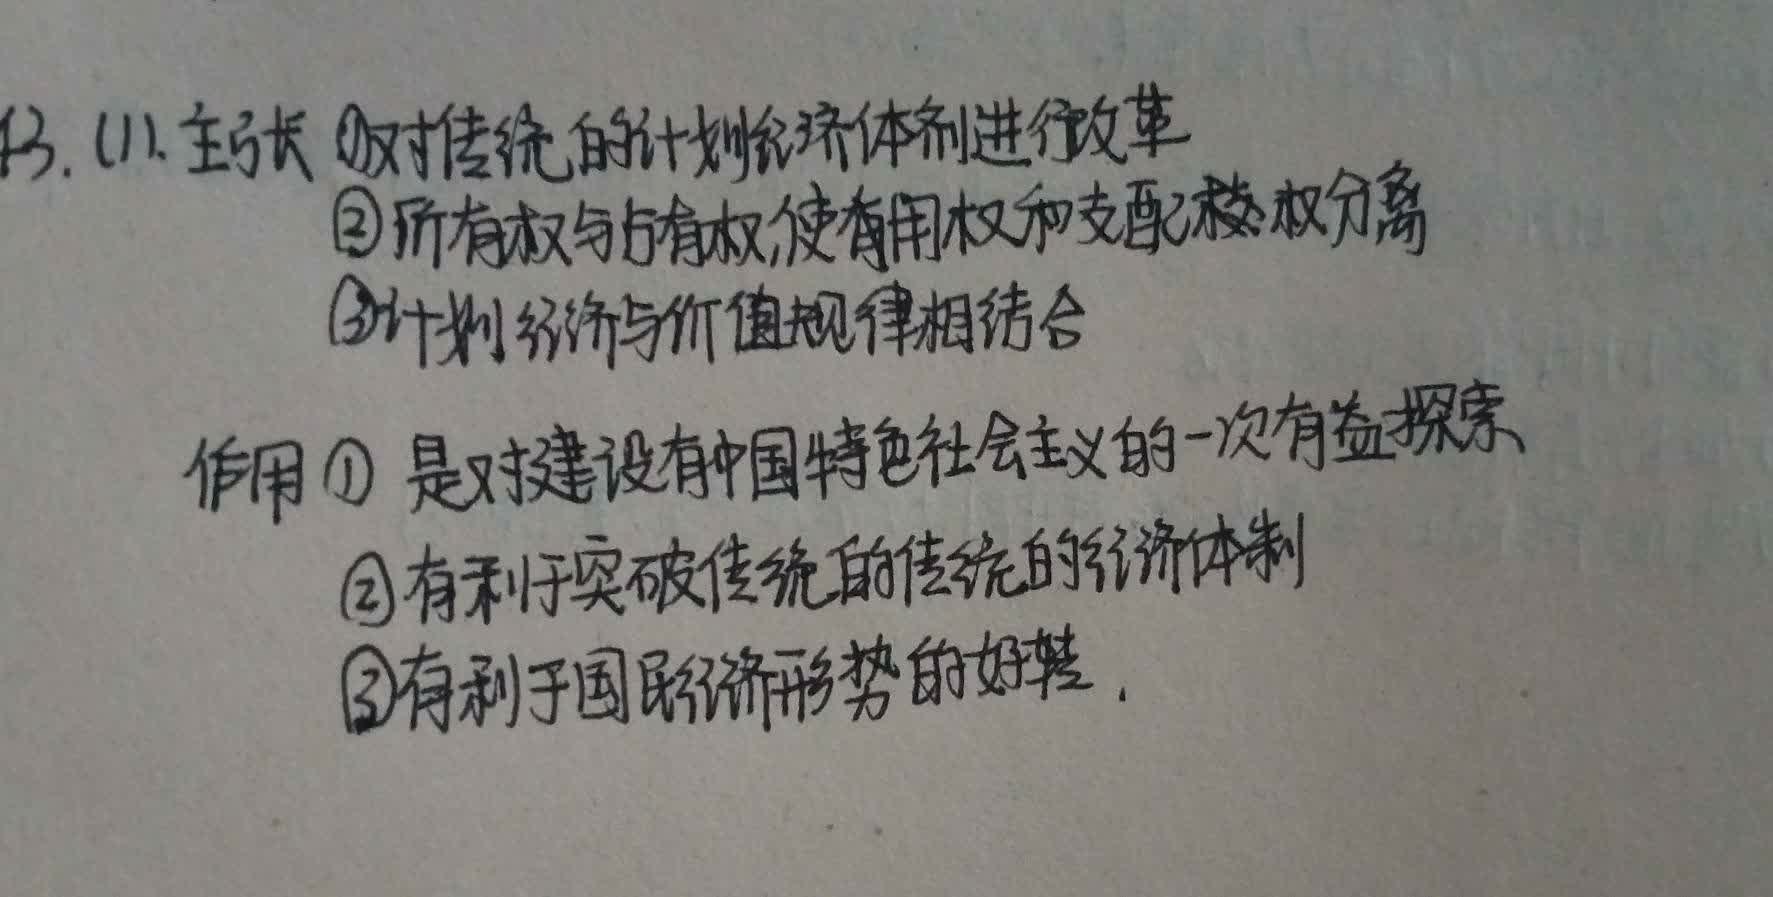 13. (1). 主张 ①对传统的计划经济体制进行改革
②所有权与占有权,使用权和支配权分离
③计划经济与价值规律相结合
作用 ① 是对建设有中国特色社会主义的一次有益探索
②有利于突破传统的传统的经济体制
③有利于国民经济形势的好转.